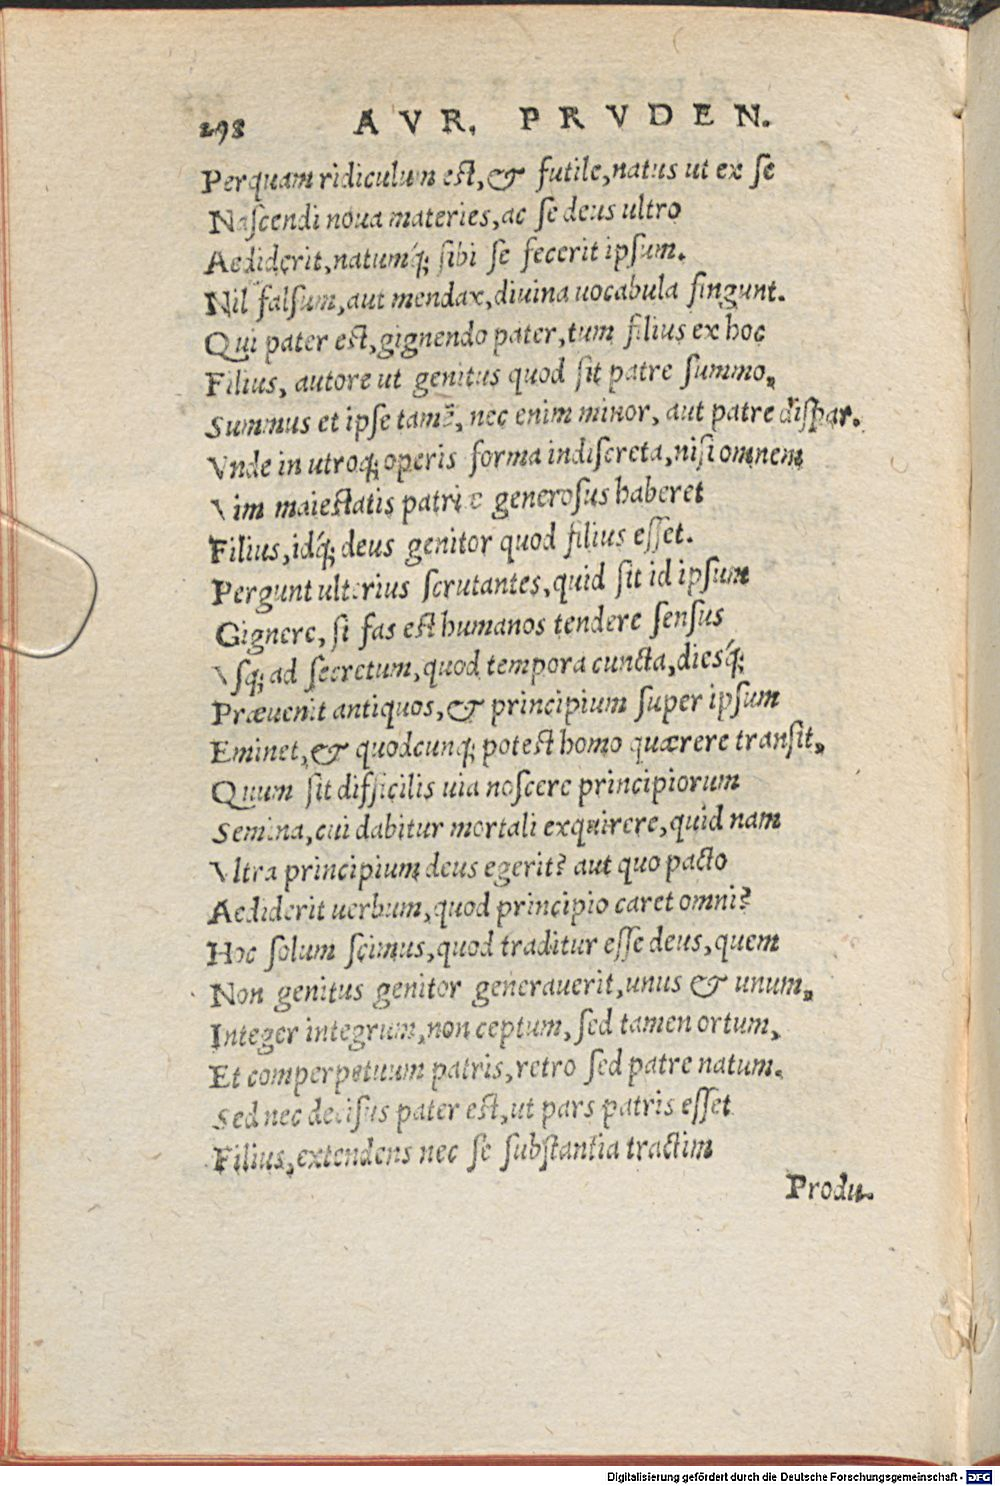 298 AVR. PRVDEN.
Perquam ridiculum est, & futile, natus ut ex se
Nascendi noua materies, ac se deus ultro
Aediderit, natumq́; sibi se fecerit ipsum.
Nil falsum, aut mendax, diuina uocabula fingunt.
Qui pater est, gignendo pater, tum filius ex hoc
Filius, autore ut genitus quod sit patre summo,
Summus et ipse tamē, nec enim minor, aut patre dispar.
Vnde in utroq; operis forma indiscreta, nisi omnem
Vim maiestatis patriæ generosus haberet
Filius, idq́; deus genitor quod filius esset.
Pergunt ulterius scrutantes, quid sit id ipsum
Gignere, si fas est humanos tendere sensus
Vsq; ad secretum, quod tempora cuncta, diesq́;
Præuenit antiquos, & principium super ipsum
Eminet, & quodcunq; potest homo quærere transit,
Quum sit difficilis uia noscere principiorum
Semina, cui dabitur mortali exquirere, quid nam
Vltra principium deus egerit? aut quo pacto
Aediderit uerbum, quod principio caret omni?
Hoc solum scimus, quod traditur esse deus, quem
Non genitus genitor generauerit, unus & unum,
Integer integrum, non ceptum, sed tamen ortum,
Et comperpetuum patris, retro sed patre natum.
Sed nec decisus pater est, ut pars patris esset
Filius, extendens nec se substantia tractim
Produ-
Digitalisierung gefördert durch die Deutsche Forschungsgemeinschaft - DFG